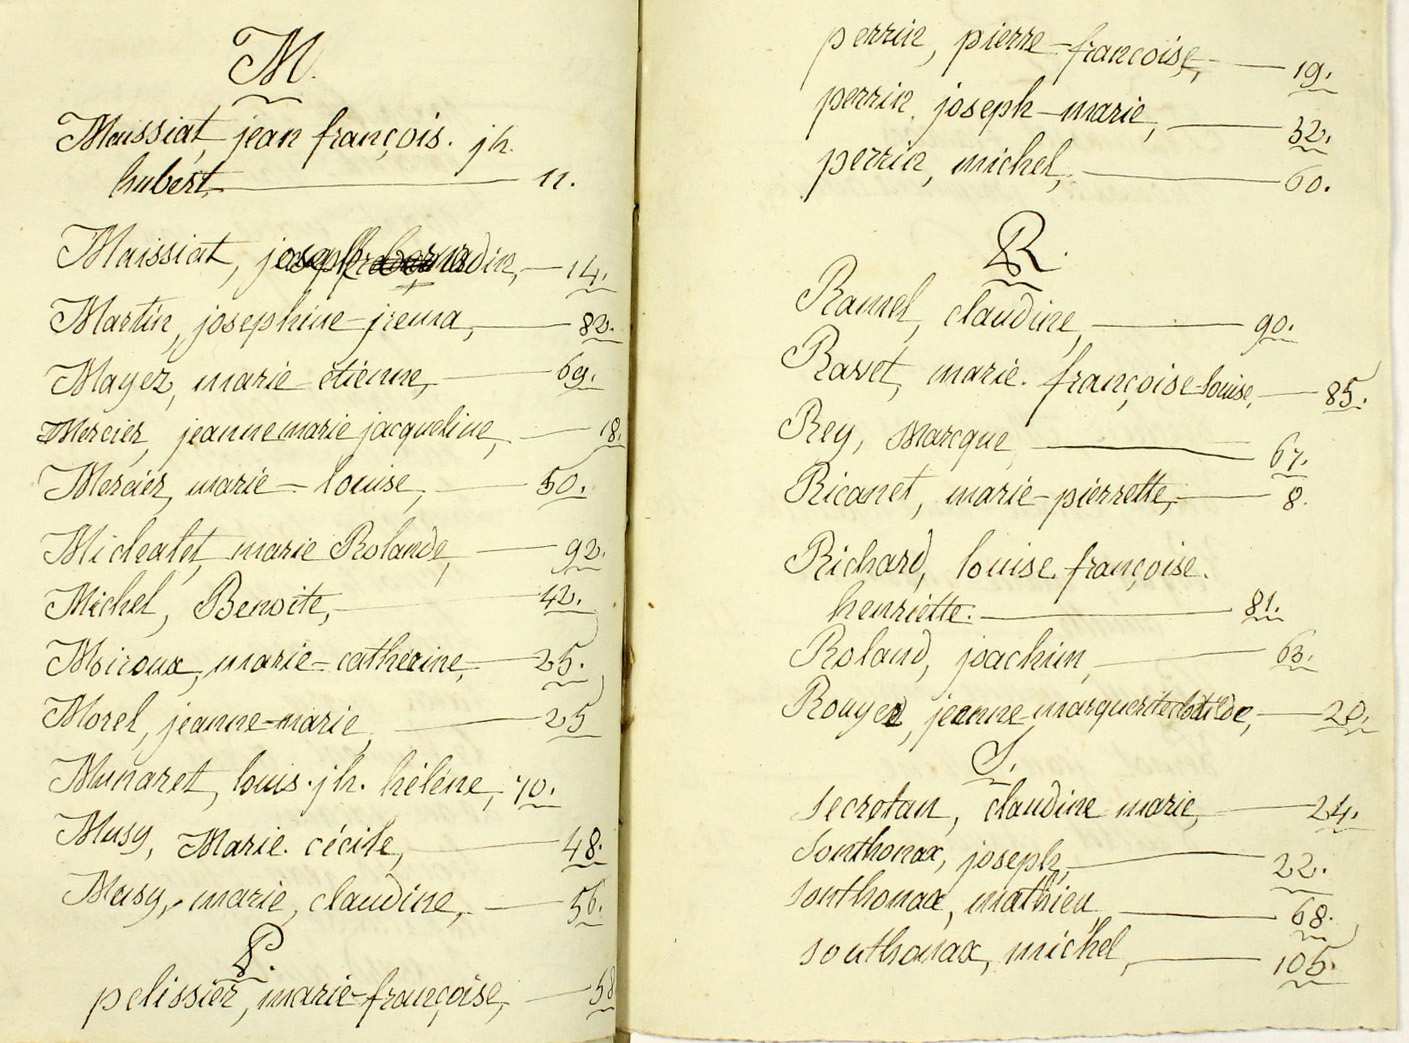 M.
Maissiat, jean françois. jh.
hubert, 11.
Maissiat, 14.
Martin, josephine jrema, 82.
Mayez, marie etienne, 69.
Mercier, jeanne marie jacqueline, 18.
Mercier, marie-louise, 50.
Michalet, marie Rolande, 92.
Michel, Benoite, 42.
Moiroux, marie-catherine, 25.
Morel, jeanne-marie, 25
Munaret, louis. jh. hélène, 70.
Musy, Marie. cécile, 48.
Musy, marie, claudine, 56.
P.
pelissier, marie-françoise, 58
perrin, pierre-françoise, 19.
perrin, joseph-marie, 32.
perrin, michel, 60.
R.
Ramel, claudine, 90.
Ravet, marie. françoise-louise, 85.
Rey, Marcque, 67.
Ricanet, marie-pierrette, 8.
Richard, louise françoise.
henriette. 81.
Roland, joachim, 63.
Rouyer, jeanne marguerite clotilde, 20.
S.
secretan, claudine marie, 24.
Sonthonax, joseph, 22.
sonthonax, mathieu, 68.
sonthonax, michel, 105.